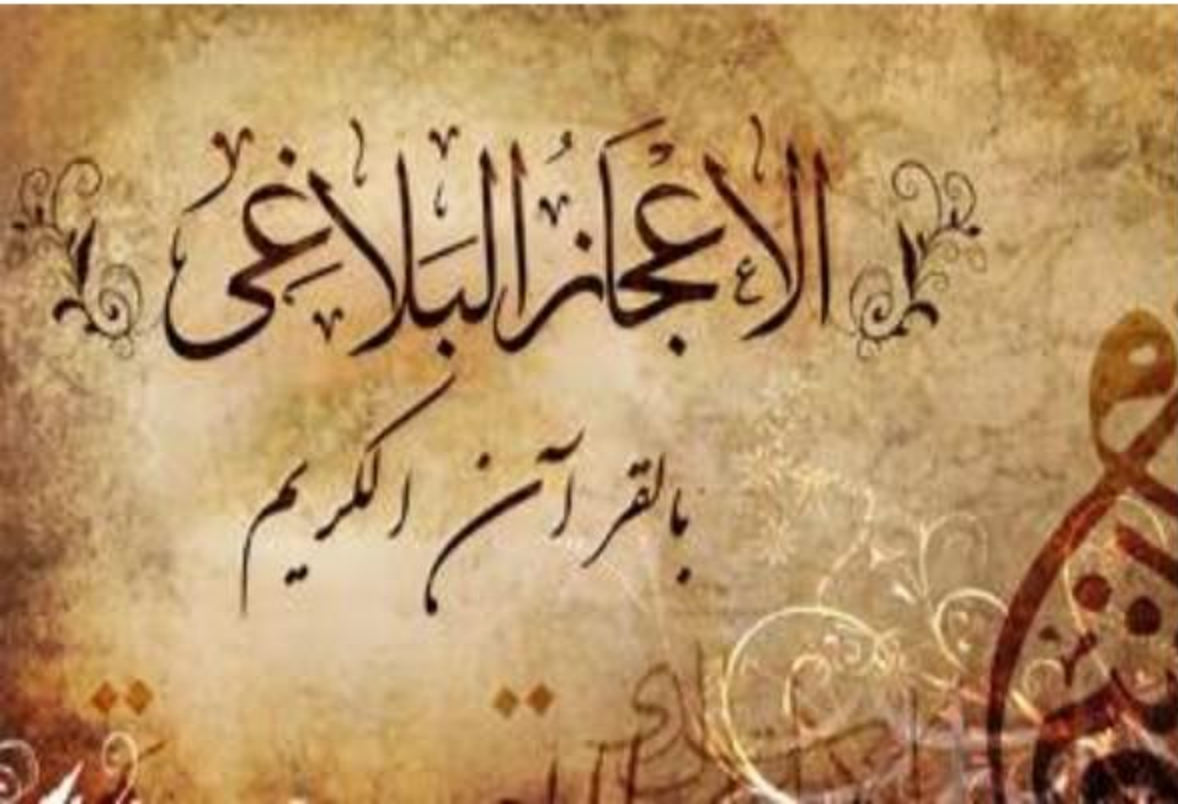 الإعْجَازُ البَلاغِى
بالقرآن الكريم